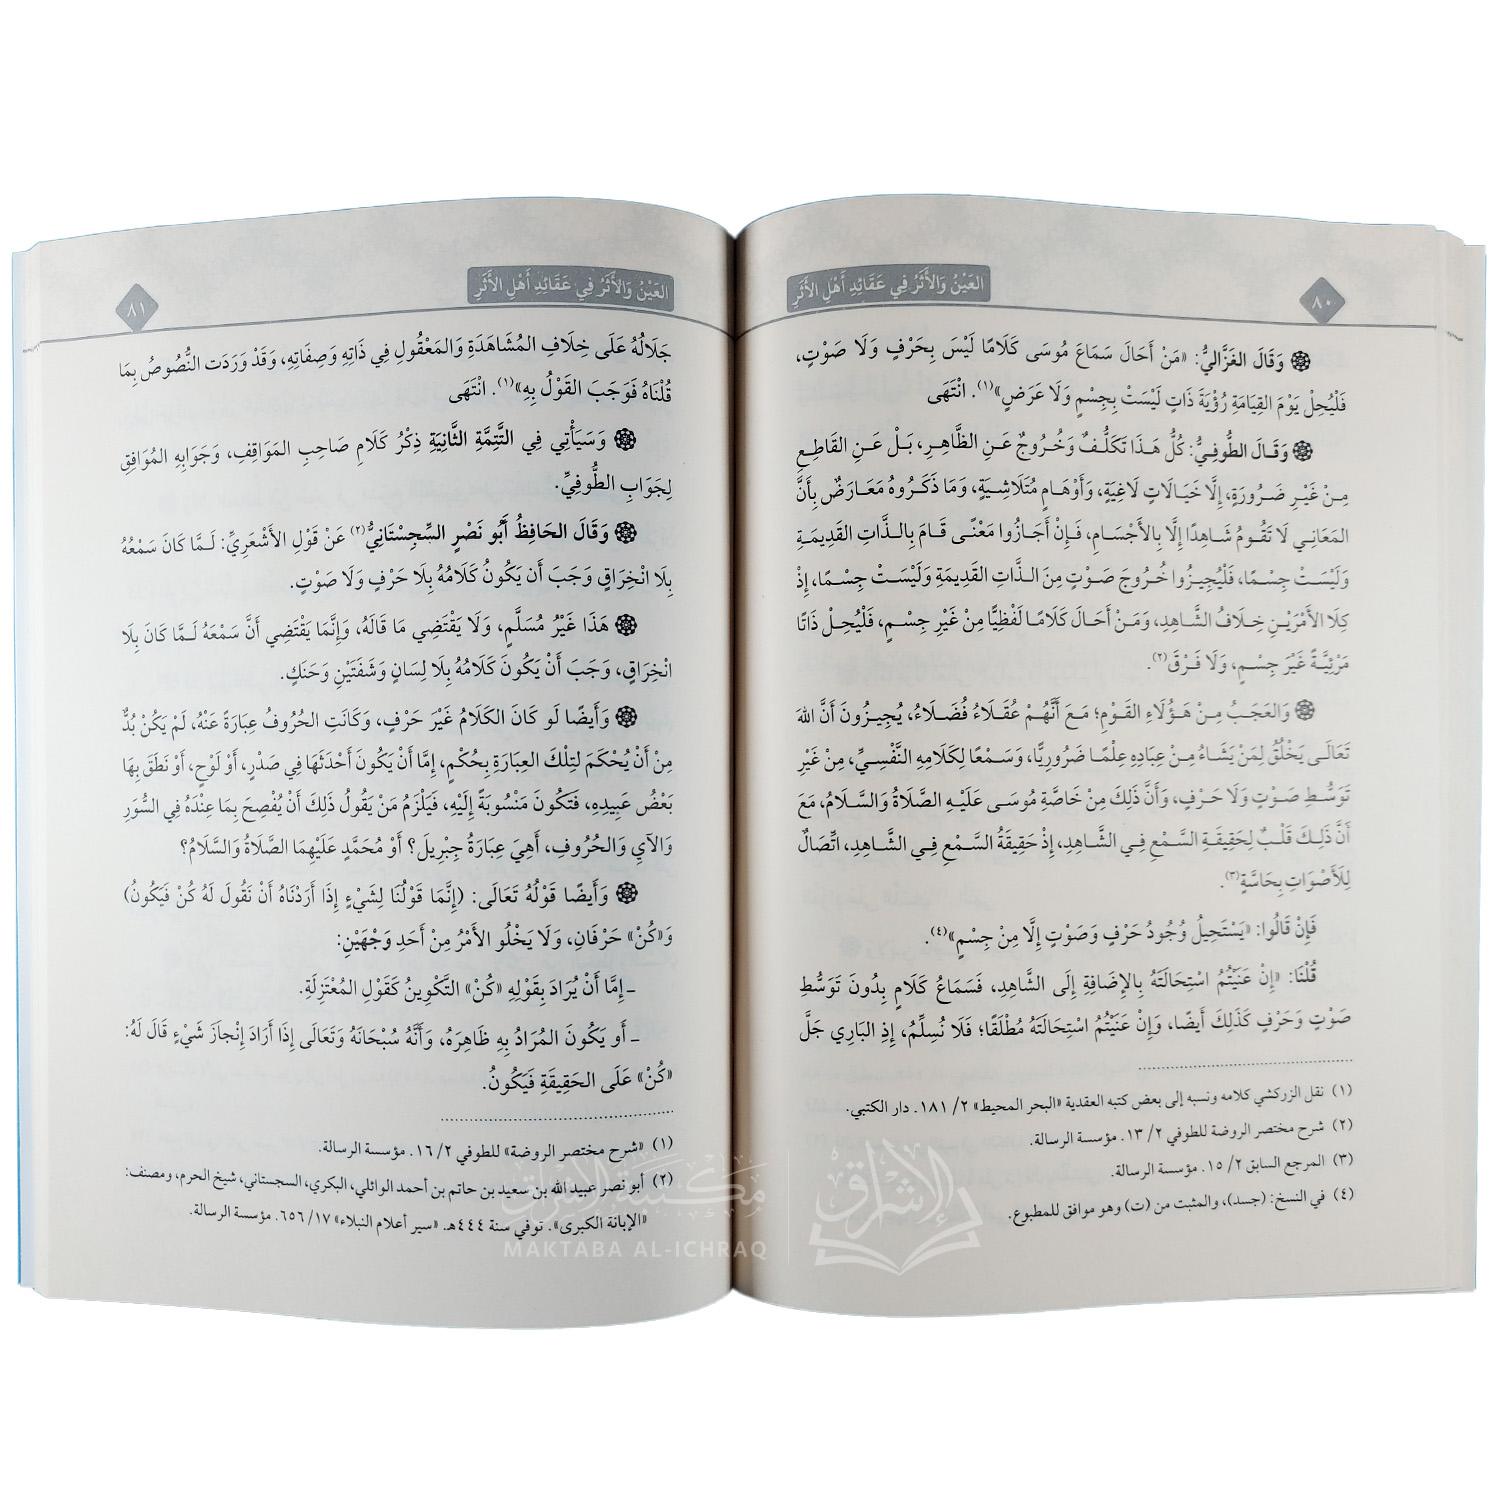 ٨٠
العَيْنُ وَالأَثَرُ فِي عَقَائِدِ أَهْلِ الأَثَرِ
وَقَالَ الغَزَّالِيُّ: «مَنْ أَحَالَ سَمَاعَ مُوسَى كَلَامًا لَيْسَ بِحَرْفٍ وَلَا صَوْتٍ،
فَلْيُحِلْ يَوْمَ القِيَامَةِ رُؤْيَةَ ذَاتٍ لَيْسَتْ بِجِسْمٍ وَلَا عَرَضٍ»(١). انْتَهَى
وَقَالَ الطُّوفِيُّ: كُلُّ هَذَا تَكَلُّفٌ وَخُرُوجٌ عَنِ الظَّاهِرِ، بَلْ عَنِ القَاطِعِ
مِنْ غَيْرِ ضَرُورَةٍ، إِلَّا خَيَالَاتٍ لَاغِيَةٍ، وَأَوْهَامٍ مُتَلَاشِيَةٍ، وَمَا ذَكَرُوهُ مَعَارَضٌ بِأَنَّ
المَعَانِي لَا تَقُومُ شَاهِدًا إِلَّا بِالأَجْسَامِ، فَإِنْ أَجَازُوا مَعْنًى قَامَ بِالذَّاتِ القَدِيمَةِ
وَلَيْسَتْ جِسْمًا، فَلْيُجِيزُوا خُرُوجَ صَوْتٍ مِنَ الذَّاتِ القَدِيمَةِ وَلَيْسَتْ جِسْمًا، إِذْ
كِلَا الأَمْرَيْنِ خِلَافُ الشَّاهِدِ، وَمَنْ أَحَالَ كَلَامًا لَفْظِيًّا مِنْ غَيْرِ جِسْمٍ، فَلْيُحِلْ ذَاتًا
مَرْئِيَّةً غَيْرَ جِسْمٍ، وَلَا فَرْقَ(٢).
وَالعَجَبُ مِنْ هَؤُلَاءِ القَوْمِ؛ مَعَ أَنَّهُمْ عُقَلَاءُ فُضَلَاءُ، يُجِيزُونَ أَنَّ اللهَ
تَعَالَى يَخْلُقُ لِمَنْ يَشَاءُ مِنْ عِبَادِهِ عِلْمًا ضَرُورِيًّا، وَسَمْعًا لِكَلَامِهِ النَّفْسِيِّ، مِنْ غَيْرِ
تَوَسُّطِ صَوْتٍ وَلَا حَرْفٍ، وَأَنَّ ذَلِكَ مِنْ خَاصَّةِ مُوسَى عَلَيْهِ الصَّلَاةُ وَالسَّلَامُ، مَعَ
أَنَّ ذَلِكَ قَلْبٌ لِحَقِيقَةِ السَّمْعِ فِي الشَّاهِدِ، إِذْ حَقِيقَةُ السَّمْعِ فِي الشَّاهِدِ، اتِّصَالٌ
لِلأَصْوَاتِ بِحَاسَّةٍ(٣).
فَإِنْ قَالُوا: «يَسْتَحِيلُ وُجُودُ حَرْفٍ وَصَوْتٍ إِلَّا مِنْ جِسْمٍ»(٤).
قُلْنَا: «إِنْ عَنَيْتُمُ اسْتِحَالَتَهُ بِالإِضَافَةِ إِلَى الشَّاهِدِ، فَسَمَاعُ كَلَامٍ بِدُونَ تَوَسُّطِ
صَوْتٍ وَحَرْفٍ كَذَلِكَ أَيْضًا، وَإِنْ عَنَيْتُمُ اسْتِحَالَتَهُ مُطْلَقًا؛ فَلَا نُسَلِّمُ، إِذِ البَارِي جَلَّ
(١) نقل الزركشي كلامه ونسبه إلى بعض كتبه العقدية «البحر المحيط» ٢/ ١٨١. دار الكتبي.
(٢) شرح مختصر الروضة للطوفي ٢/ ١٣. مؤسسة الرسالة.
(٣) المرجع السابق ٢/ ١٥. مؤسسة الرسالة.
(٤) في النسخ: (جسد)، والمثبت من (ت) وهو موافق للمطبوع.
العَيْنُ وَالأَثَرُ فِي عَقَائِدِ أَهْلِ الأَثَرِ
٨١
جَلَالُهُ عَلَى خِلَافِ المُشَاهَدَةِ وَالمَعْقُولِ فِي ذَاتِهِ وَصِفَاتِهِ، وَقَدْ وَرَدَتِ النُّصُوصُ بِمَا
قُلْنَاهُ فَوَجَبَ القَوْلُ بِهِ»(١). انْتَهَى
وَسَيَأْتِي فِي التَّتِمَّةِ الثَّانِيَةِ ذِكْرُ كَلَامِ صَاحِبِ المَوَاقِفِ، وَجَوَابِهِ المُوَافِقِ
لِجَوَابِ الطُّوفِيِّ.
وَقَالَ الحَافِظُ أَبُو نَصْرٍ السِّجِسْتَانِيُّ(٢) عَنْ قَوْلِ الأَشْعَرِيِّ: لَمَّا كَانَ سَمْعُهُ
بِلَا انْخِرَاقٍ وَجَبَ أَن يَكُونُ كَلَامُهُ بِلَا حَرْفٍ وَلَا صَوْتٍ.
هَذَا غَيْرُ مُسَلَّمٍ، وَلَا يَقْتَضِي مَا قَالَهُ، وَإِنَّمَا يَقْتَضِي أَنَّ سَمْعَهُ لَمَّا كَانَ بِلَا
انْخِرَاقٍ، وَجَبَ أَنْ يَكُونَ كَلَامُهُ بِلَا لِسَانٍ وَشَفَتَيْنِ وَحَنَكٍ.
وَأَيضًا لَو كَانَ الكَلَامُ غَيْرَ حَرْفٍ، وَكَانَتِ الحُرُوفُ عِبَارَةً عَنْهُ، لَمْ يَكُنْ بُدٌّ
مِنْ أَنْ يُحْكَمَ لِتِلْكَ العِبَارَةِ بِحُكْمٍ، إِمَّا أَنْ يَكُونَ أَحْدَثَهَا فِي صَدْرٍ، أَوْ لَوْحٍ، أَوْ نَطَقَ بِهَا
بَعْضُ عَبِيدِهِ، فَتَكُونَ مَنْسُوبَةً إِلَيْهِ، فَيَلْزَمُ مَنْ يَقُولُ ذَلِكَ أَنْ يُفْصِحَ بِمَا عِنْدَهُ فِي السُّوَرِ
وَالآيِ وَالحُرُوفِ، أَهِيَ عِبَارَةُ جِبْرِيلَ؟ أَوْ مُحَمَّدٍ عَلَيْهِمَا الصَّلَاةُ وَالسَّلَامُ؟
وَأَيضًا قَوْلُهُ تَعَالَى: (إِنَّمَا قَوْلُنَا لِشَيْءٍ إِذَا أَرَدْنَاهُ أَنْ نَقُولَ لَهُ كُنْ فَيَكُونُ)
وَ«كُنْ» حَرْفَانِ، وَلَا يَخْلُو الأَمْرُ مِنْ أَحَدِ وَجْهَيْنِ:
ـ إِمَّا أَنْ يُرَادَ بِقَوْلِهِ «كُنْ» التَّكْوِينُ كَقَوْلِ المُعْتَزِلَةِ.
ـ أَو يَكُونَ المُرَادُ بِهِ ظَاهِرَهُ، وَأَنَّهُ سُبْحَانَهُ وَتَعَالَى إِذَا أَرَادَ إِنْجَازَ شَيْءٍ قَالَ لَهُ:
«كُنْ» عَلَى الحَقِيقَةِ فَيَكُونُ.
(١) «شرح مختصر الروضة» للطوفي ٢/ ١٦. مؤسسة الرسالة.
(٢) أبو نصر عبيد الله بن سعيد بن حاتم بن أحمد الوائلي، البكري، السجستاني، شيخ الحرم، ومصنف:
«الإبانة الكبرى». توفي سنة ٤٤٤هـ. «سير أعلام النبلاء» ١٧/ ٦٥٦. مؤسسة الرسالة.
مكتبة الإشراق
MAKTABA AL-ICHRAQ
الإشراق